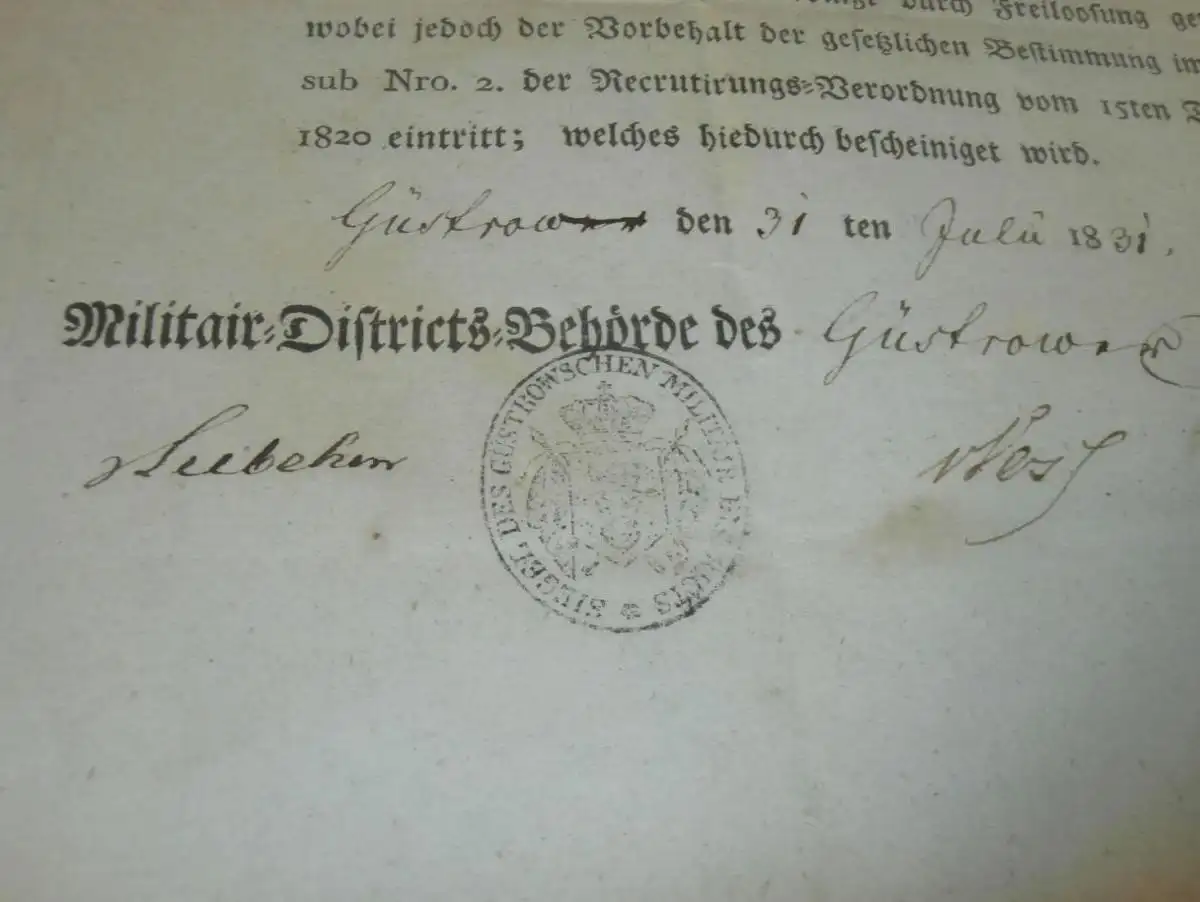 durch Freiloosung
wobei jedoch der Vorbehalt der gesetzlichen Bestimmung im
sub Nro. 2. der Recrutirungs-Verordnung vom 15ten
1820 eintritt; welches hiedurch bescheiniget wird.
Güstrow den 31 ten Julii 1831.
Militair-Districts-Behörde des Güstrower
SIEGEL DES GUSTROWSCHEN MILITAIR DISTRICTS